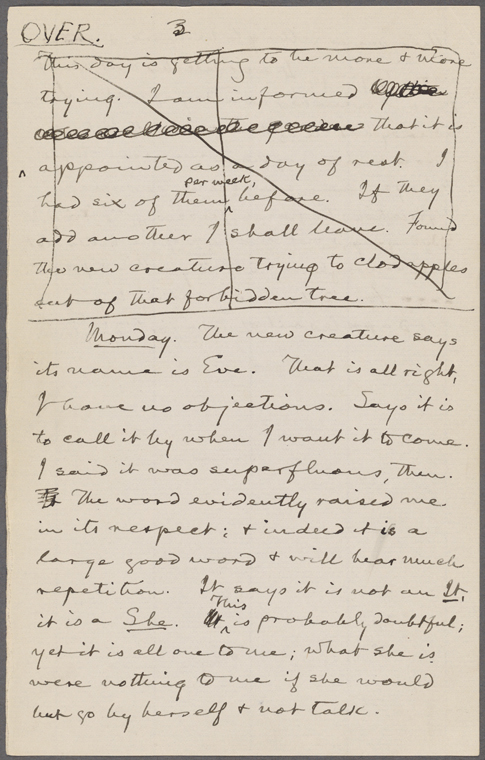 OVER. 3
This day is getting to be more & more
trying. I am informed
that it is
appointed as a day of rest. I
per week,
had six of them before. If they
add another I shall leave. Found
the new creature trying to clod apples
out of that forbidden tree.
Monday. The new creature says
its name is Eve. That is all right,
I have no objections. Says it is
to call it by when I want it to come.
I said it was superfluous, then.
The word evidently raised me
in its respect; & indeed it is a
large good word & will bear much
repetition. It says it is not an It,
it is a She. This
is probably doubtful;
yet it is all one to me; what she is
were nothing to me if she would
but go by herself & not talk.